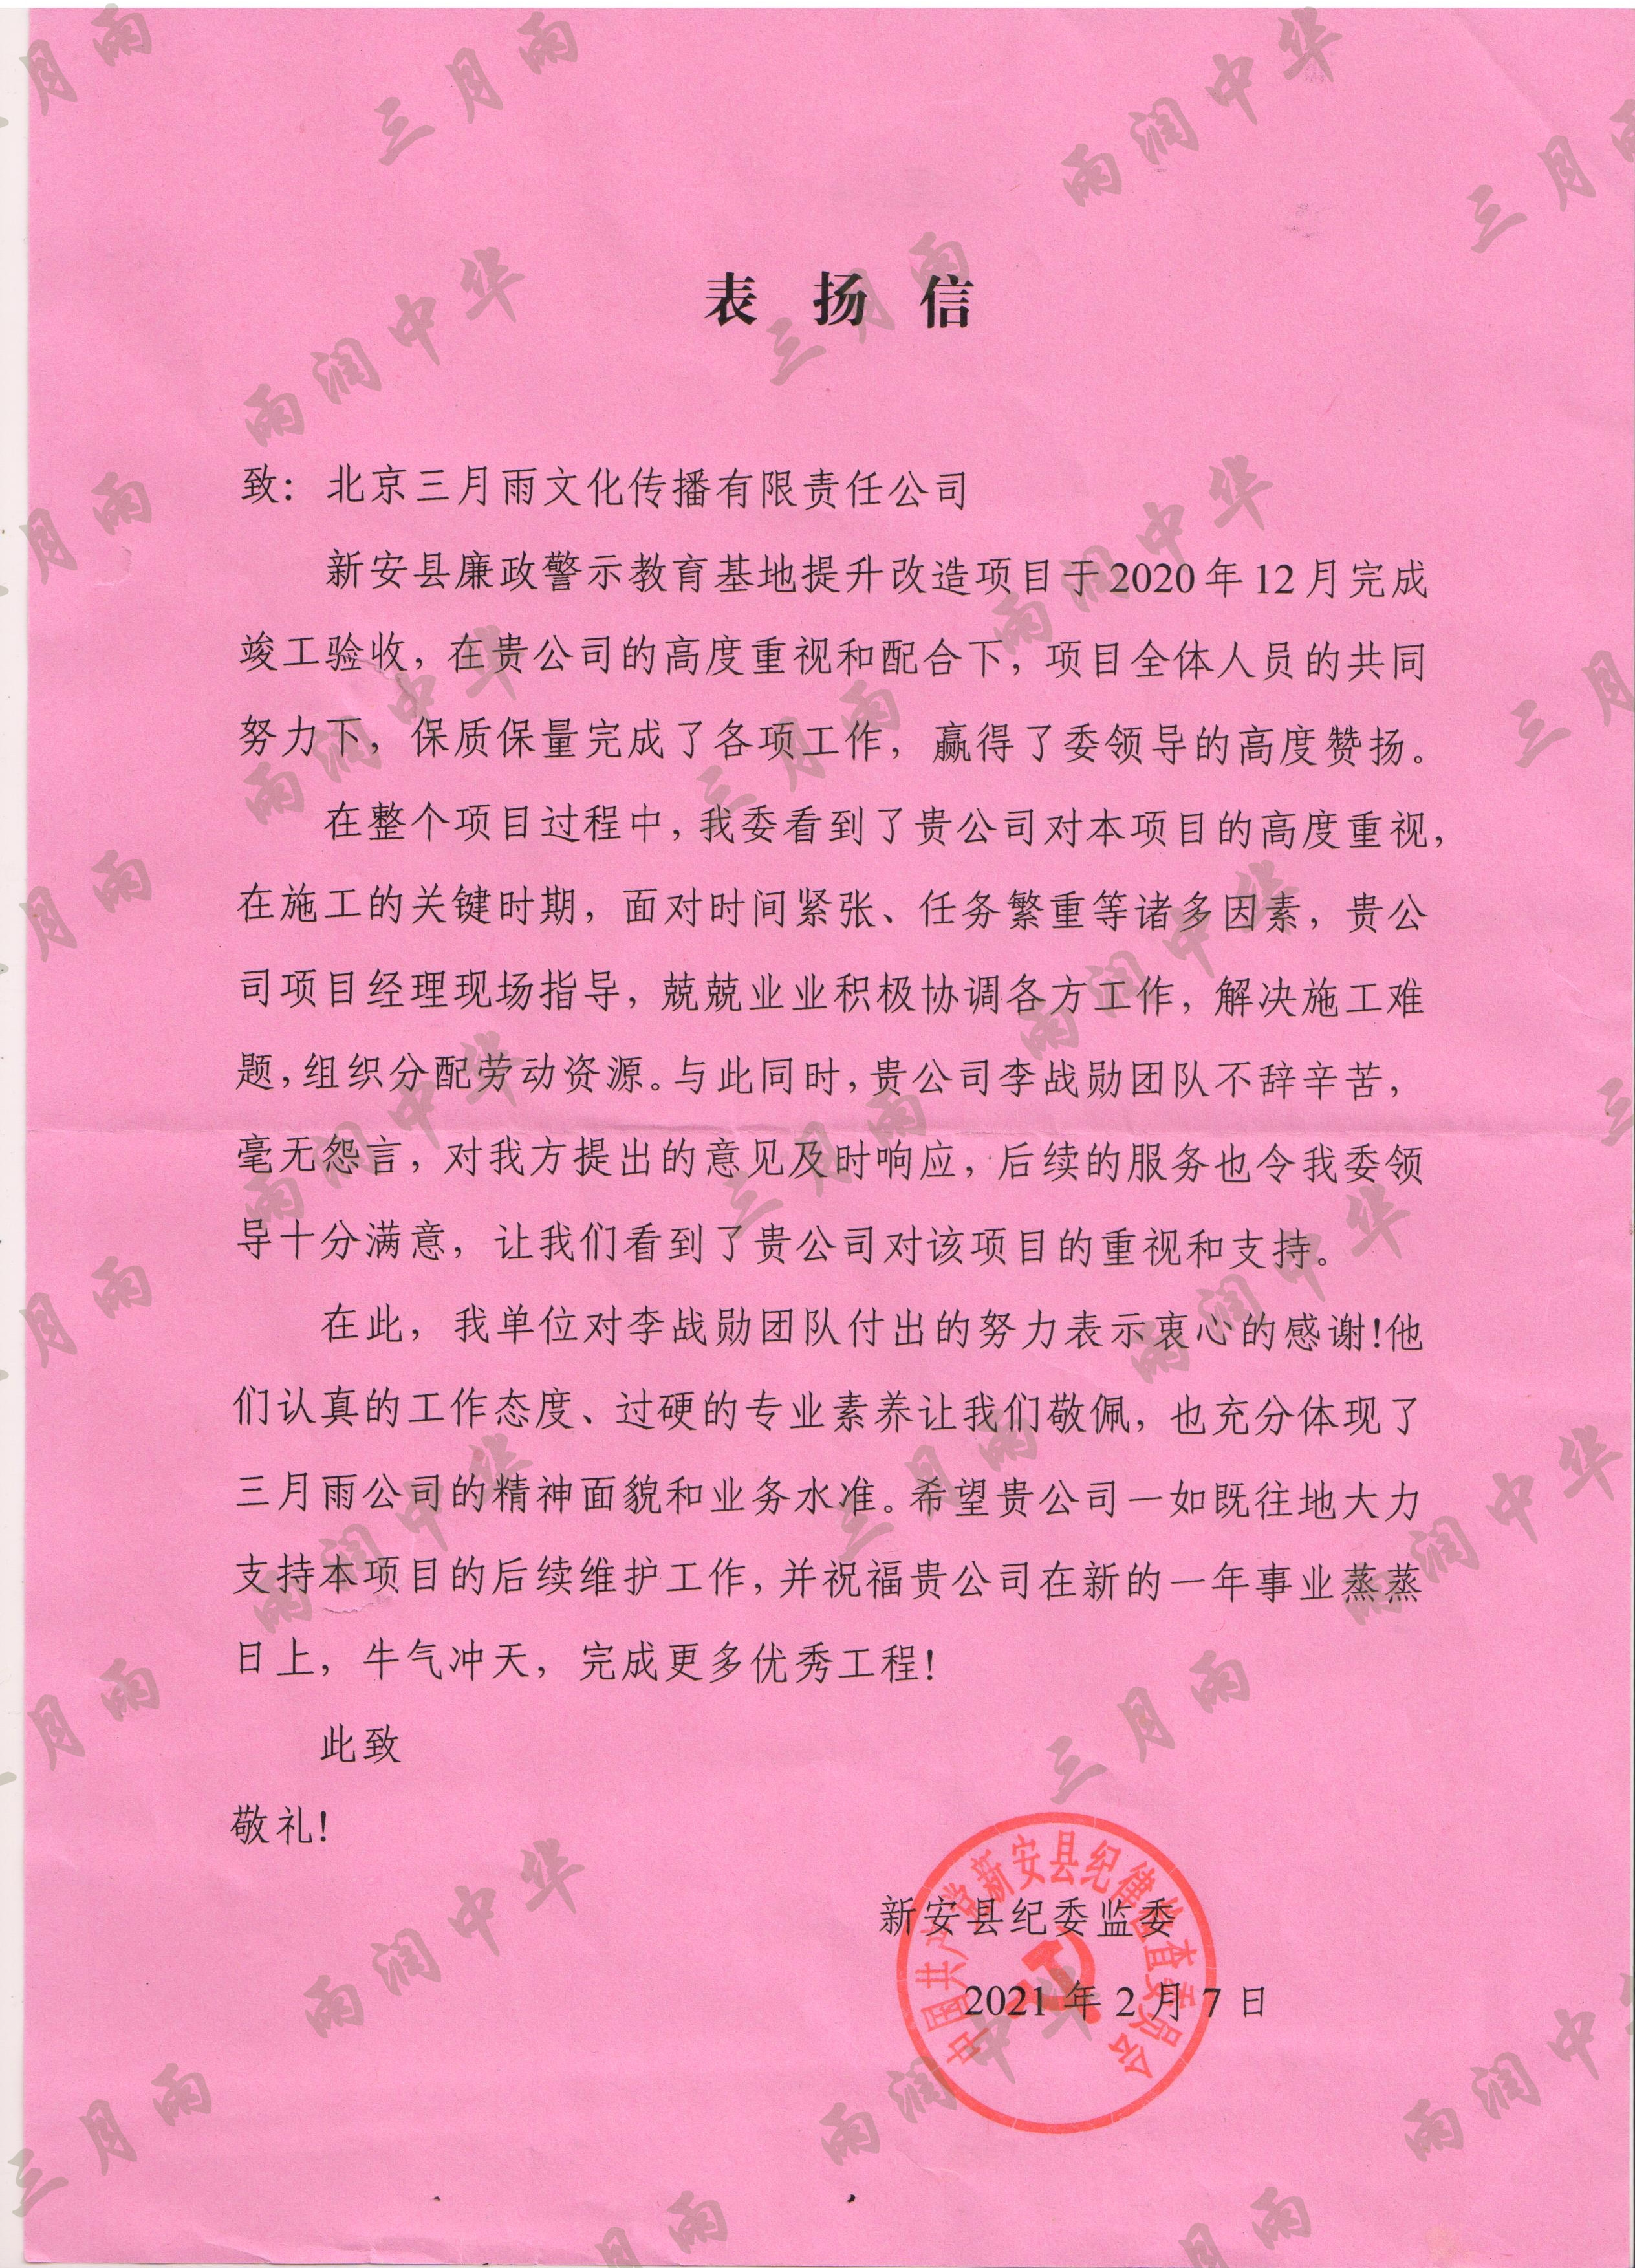 表 扬 信
致：北京三月雨文化传播有限责任公司
新安县廉政警示教育基地提升改造项目于2020年12月完成
竣工验收，在贵公司的高度重视和配合下，项目全体人员的共同
努力下，保质保量完成了各项工作，赢得了委领导的高度赞扬。
在整个项目过程中，我委看到了贵公司对本项目的高度重视，
在施工的关键时期，面对时间紧张、任务繁重等诸多因素，贵公
司项目经理现场指导，兢兢业业积极协调各方工作，解决施工难
题，组织分配劳动资源。与此同时，贵公司李战勋团队不辞辛苦，
毫无怨言，对我方提出的意见及时响应，后续的服务也令我委领
导十分满意，让我们看到了贵公司对该项目的重视和支持。
在此，我单位对李战勋团队付出的努力表示衷心的感谢!他
们认真的工作态度、过硬的专业素养让我们敬佩，也充分体现了
三月雨公司的精神面貌和业务水准。希望贵公司一如既往地大力
支持本项目的后续维护工作，并祝福贵公司在新的一年事业蒸蒸
日上，牛气冲天，完成更多优秀工程!
此致
敬礼!
新安县纪委监委
2021年2月7日
中国共产党新安县纪律检查委员会
三月雨
雨润中华